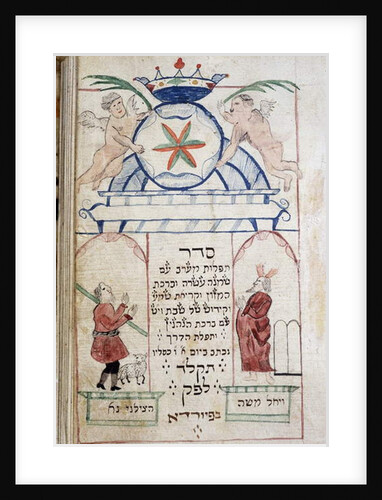 סדר
תפלות מערב עם
שמנה עשרה וברכת
המזון וקריאת שמע
וקידוש של שבת וי״ט
עם ברכת הנהנין
ותפלת הדרך
נכתב ביום א׳ כסליו
תקלד
לפק
בפיורדא
הצילני נא
ויחל משה